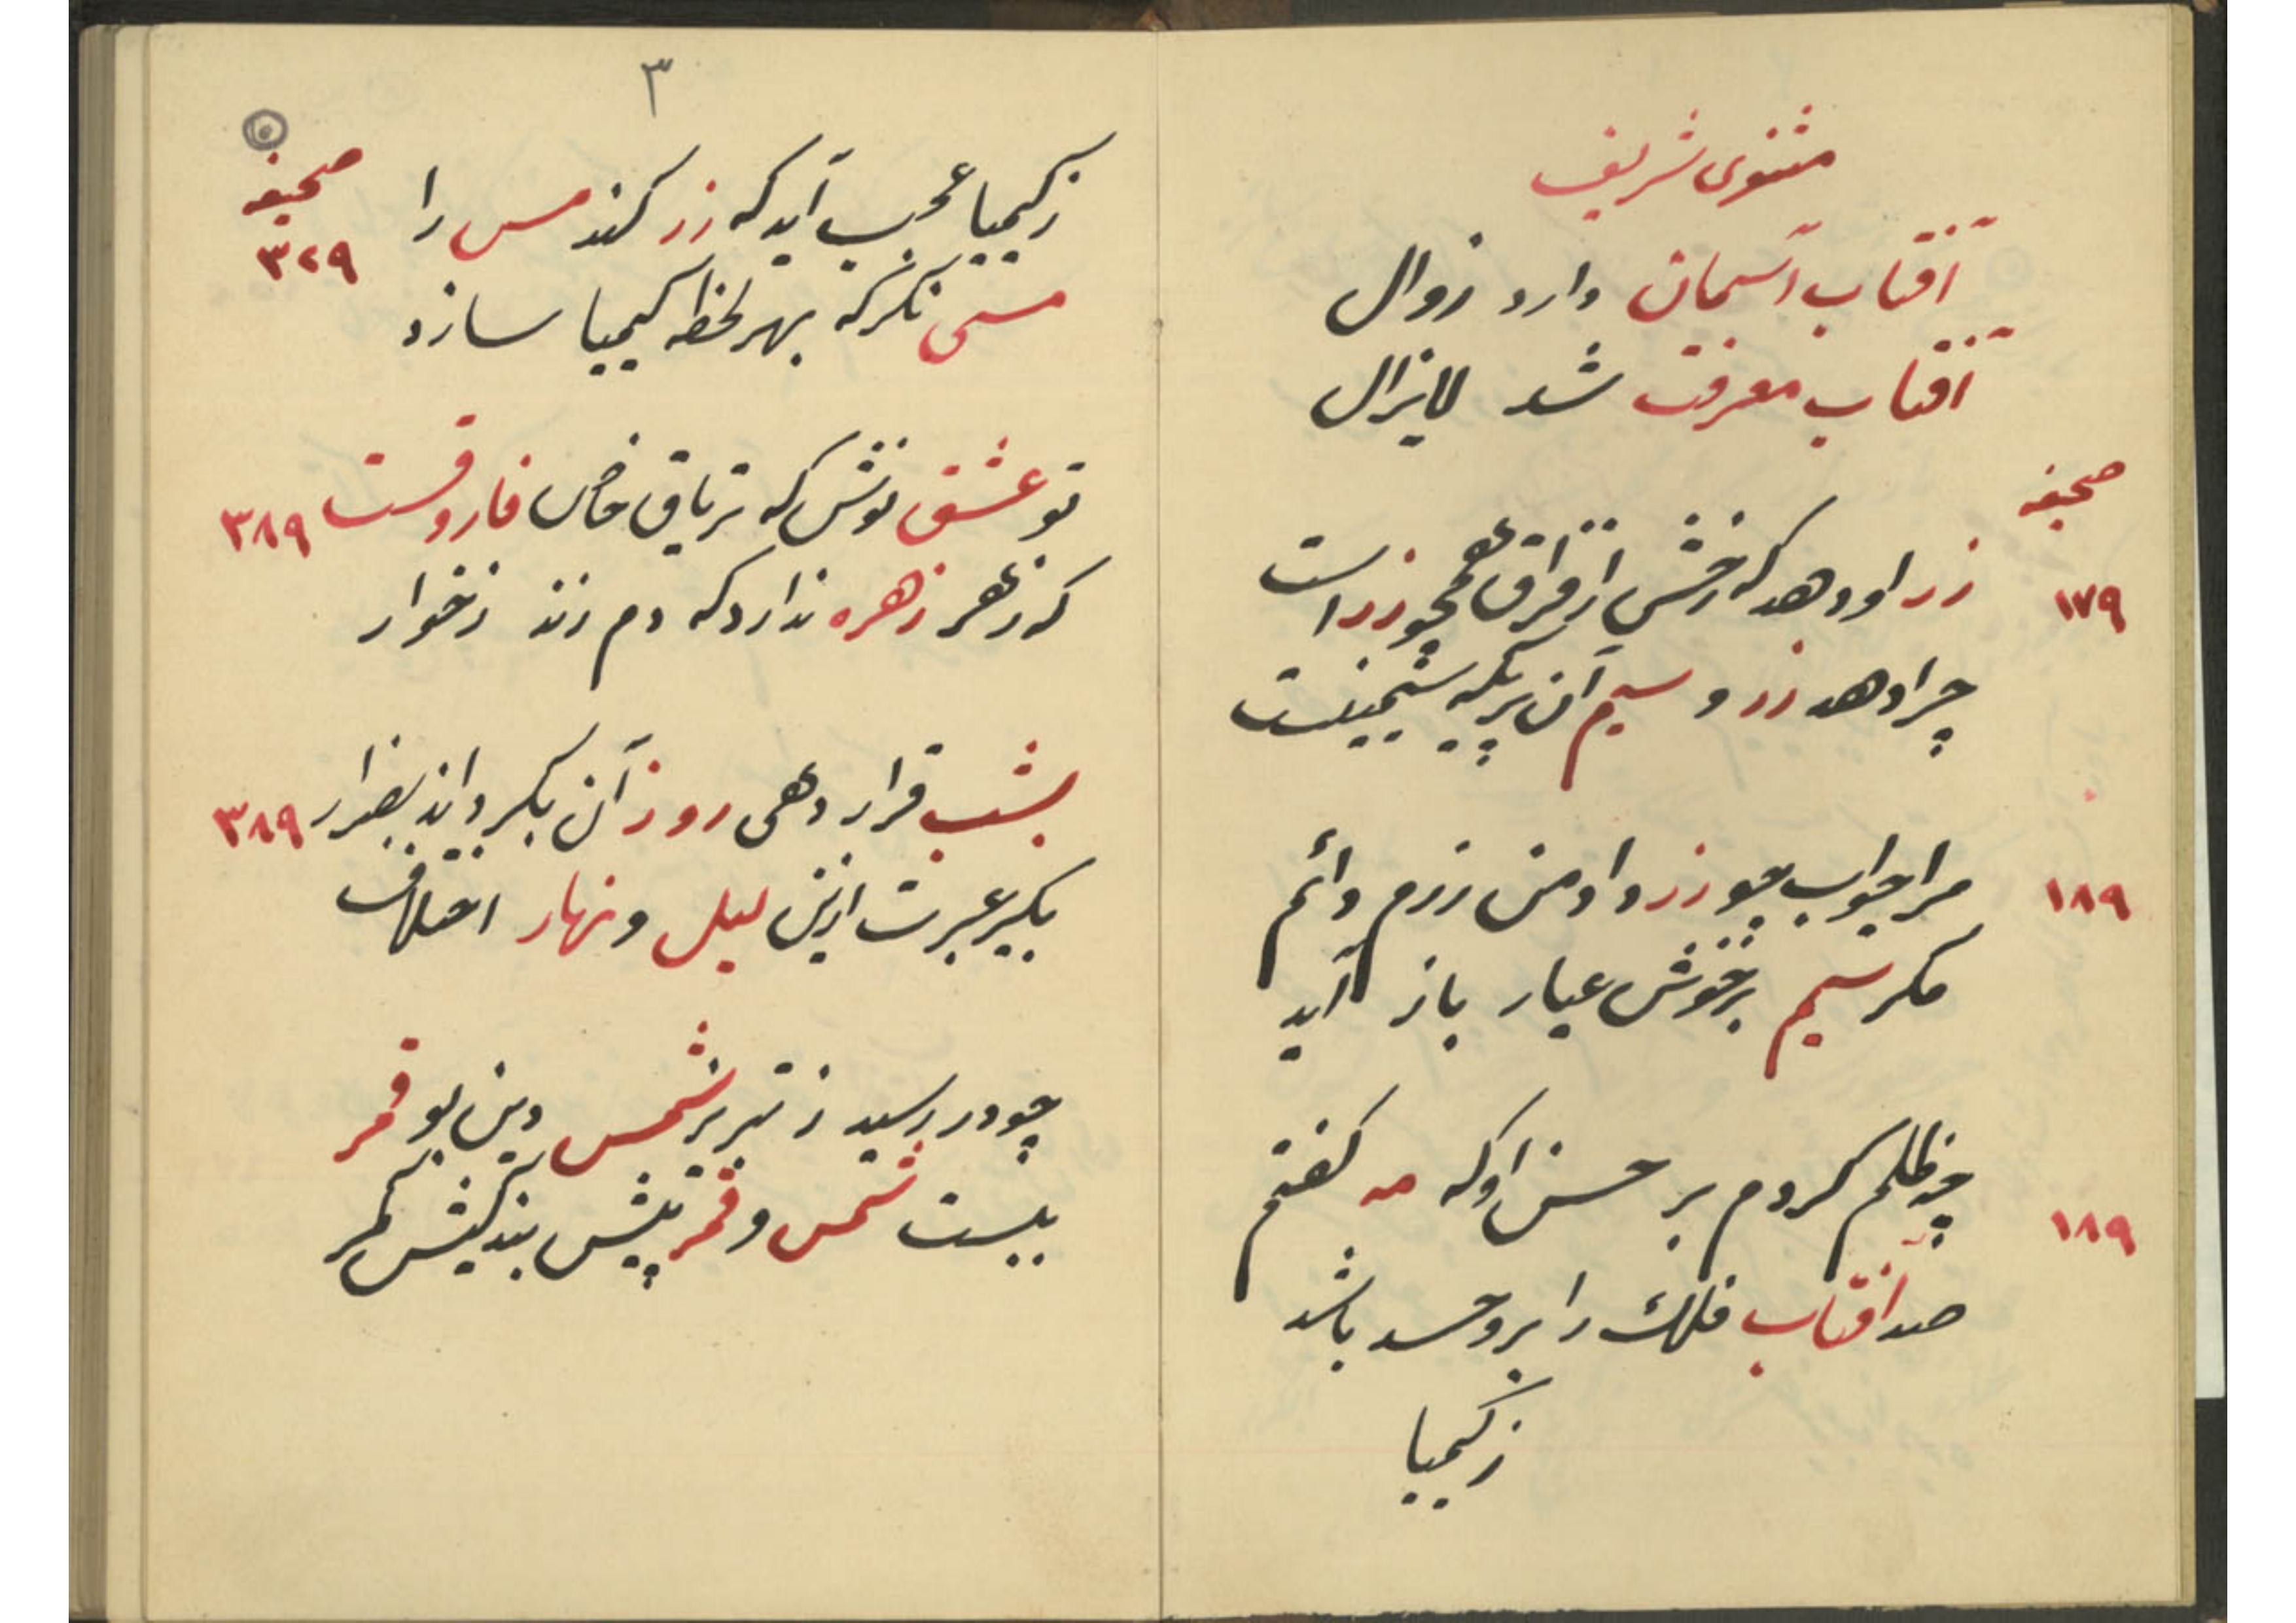 مثنوی شریف
آفتاب آسمان دارد زوال
آفتاب معرفت شد لایزال
صحیفه
زر او دهد که رخش از فراق همچو زر است
۱۷۹
چرا دهد زر و سیم آن پریکه سیمینست
مرا جواب چو زر داد من زرم دائم ۱۸۹
مکر سیم بر خوش عیار باز آید
چه ظلم کردم بر حسن او که مه کفتم
۱۸۹
صد آفتاب فلک را بر و حسد باشد
ز کیمیا
۳
۵
صحیفه
ز کیمیا عجب آید که زر کند مس را
۳۲۹
مسی نکر که بهر لحظه کیمیا سازد
تو عشق نوش که تریاق خاص فاروقست ۳۸۹
که زهر زهره ندارد که دم زند ز خوار
بشب قرار دهی روز آن بکرداند ۳۸۹
بکیر عبرت ازین لیل و نهار اختلاف
چو در رسید ز تبریز شمس دین بو قمر
ببست شمس و قمر پیش بندکیش کمر